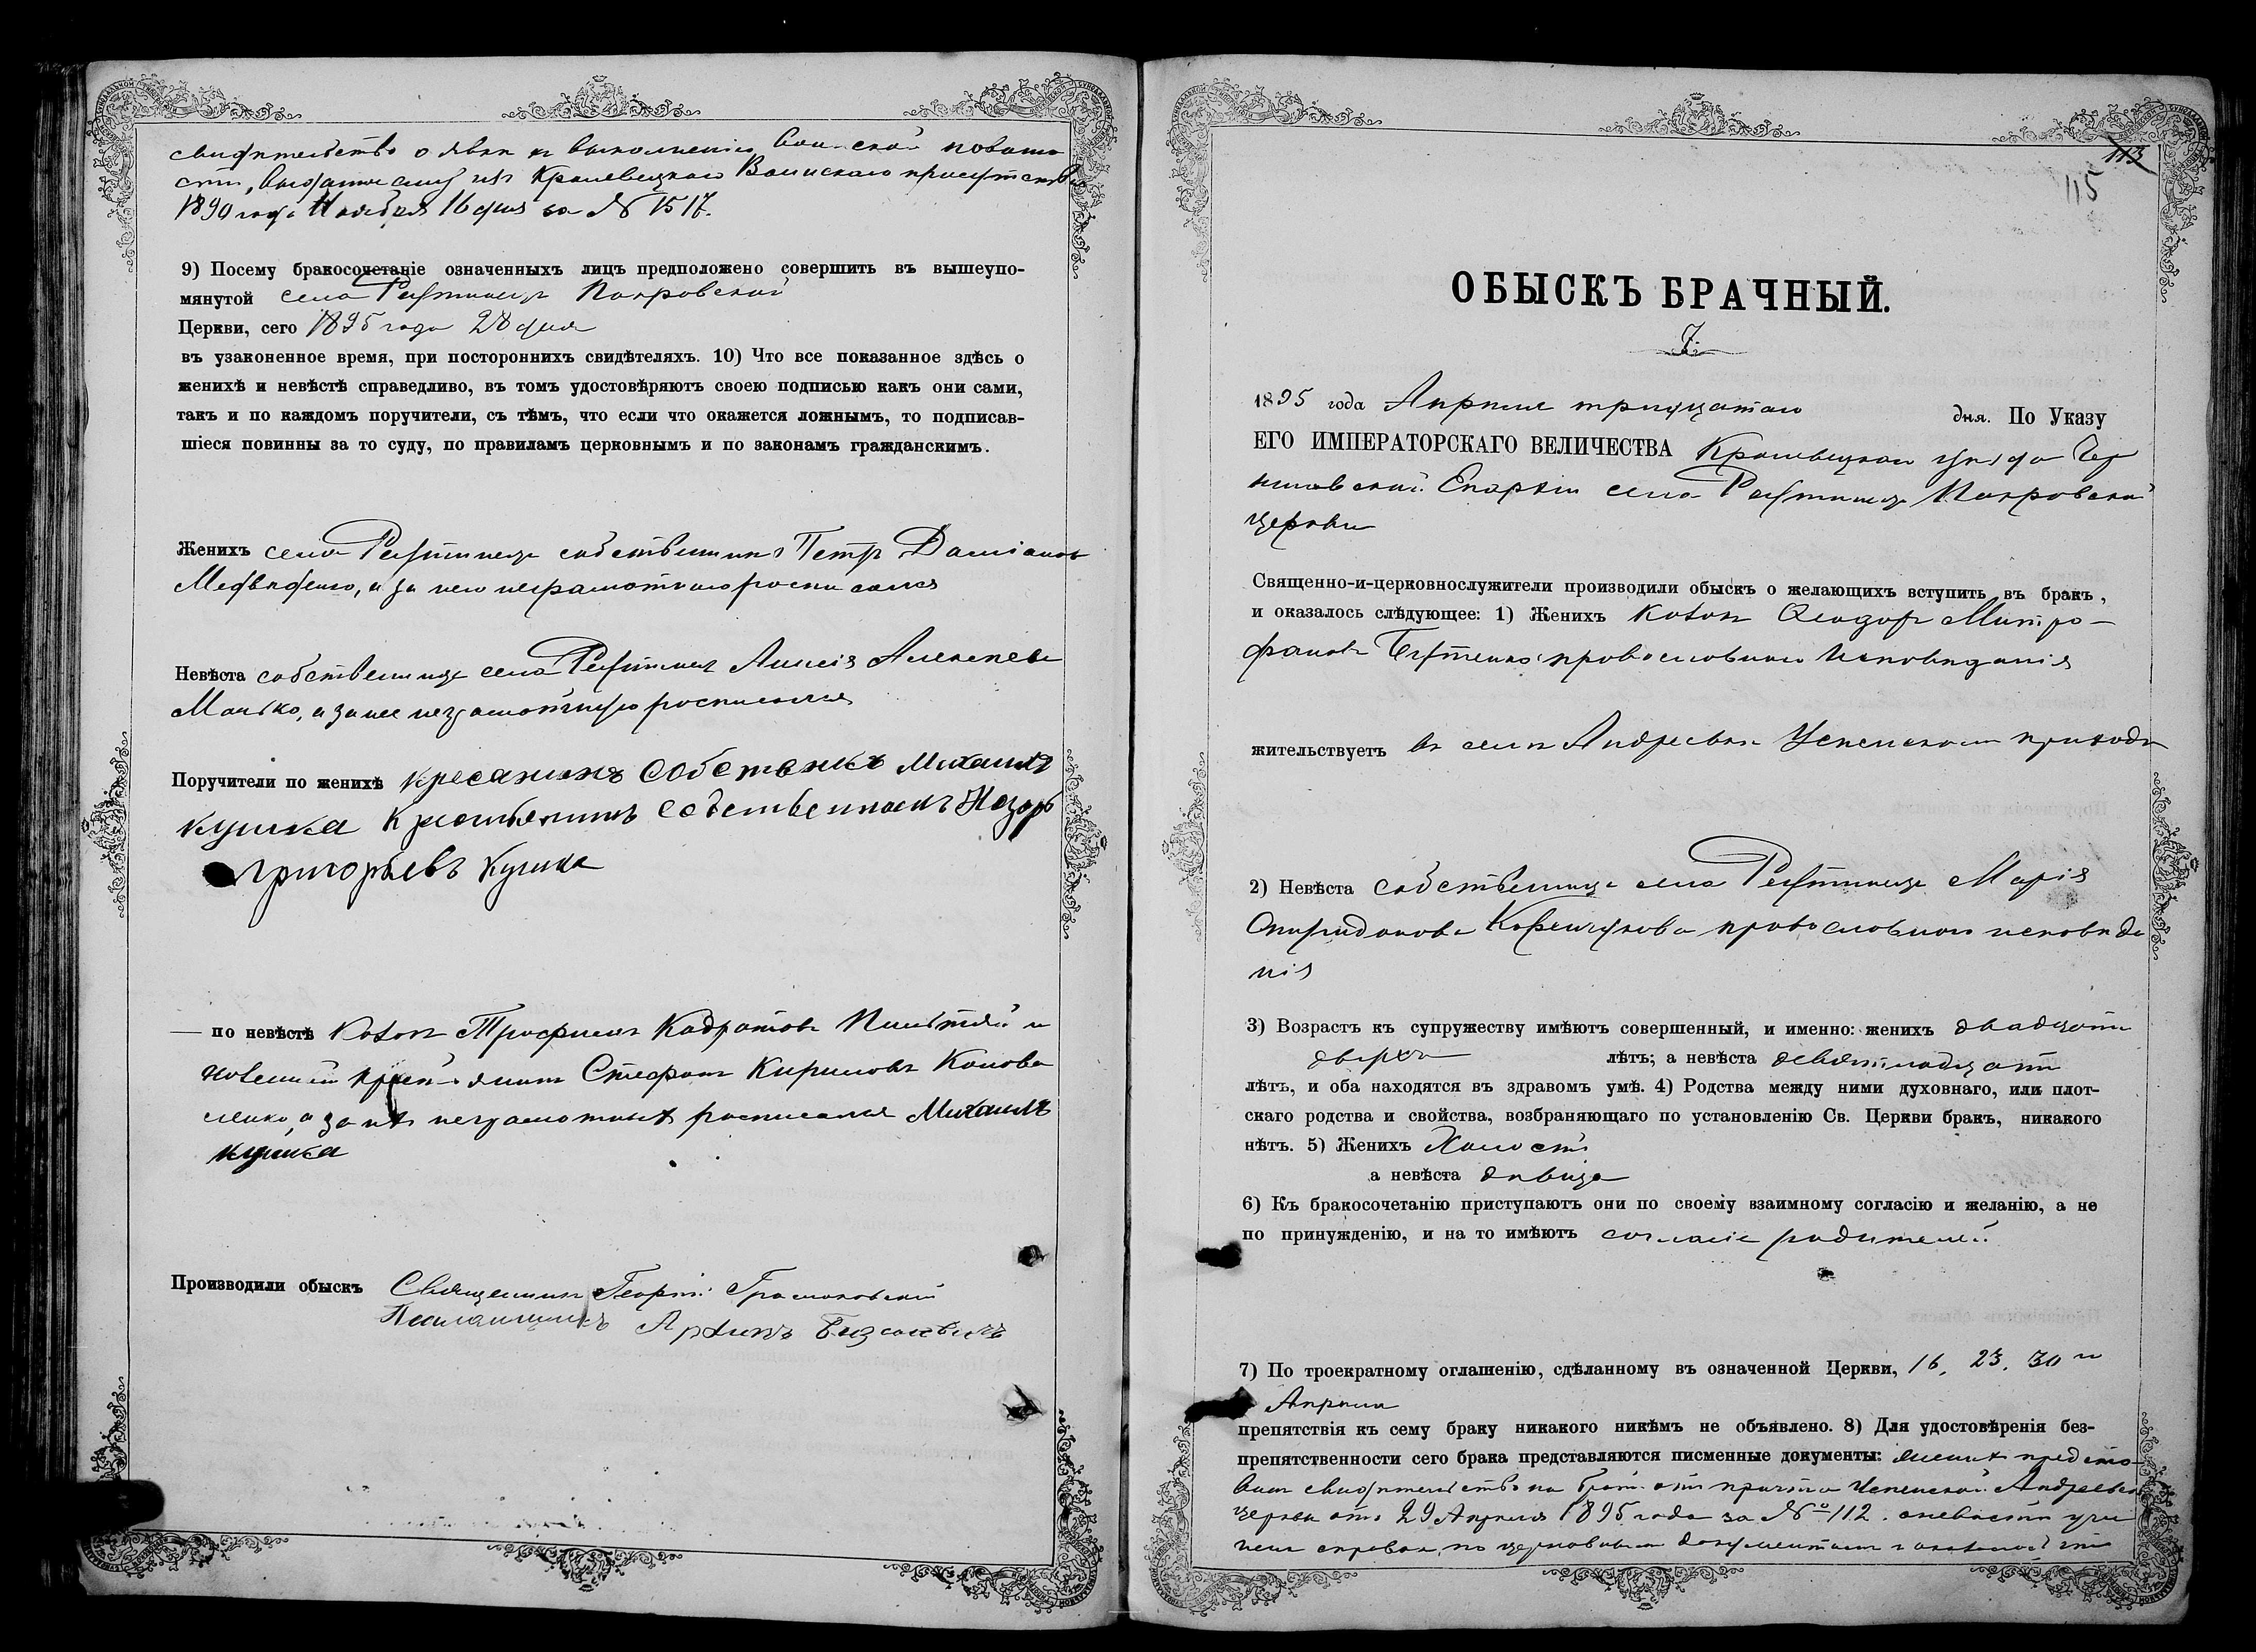 свидѣтельство о явкѣ къ выполненію воинской повинно
сти, выданное ему изъ Кролевецкаго Воинскаго присутствія
1890 года Ноября 16 дня за № 1517.
9) Посему бракосочетаніе означенныхъ лицъ предположено совершить въ вышеупо-
мянутой села Реутинецъ Покровской
Церкви, сего 1895 года 28 дня
въ узаконенное время, при постороннихъ свидѣтеляхъ. 10) Что все показанное здѣсь о
женихѣ и невѣстѣ справедливо, въ томъ удостовѣряютъ своею подписью какъ они сами,
такъ и по каждомъ поручители, съ тѣмъ, что если что окажется ложнымъ, то подписав-
шіеся повинны за то суду, по правиламъ церковнымъ и по законамъ гражданскимъ.
Женихъ села Реутинецъ собственникъ Петръ Даміановъ
Медвѣденко, а за него неграмотнаго росписался
Невѣста собственница села Реутинецъ Алексѣева
а за нее неграмотную росписался
Поручители по женихѣ кресанинъ собственикъ Михаилъ
кушка Крестьянинъ собственникъ Назаръ
григорьевъ Кушка
— по невѣстѣ Козакъ Трофимъ Кодратовъ и
Стефанъ Кириловъ Конова
ленко, а за нихъ неграмотныхъ росписался Михаилъ
кушка
Производили обыскъ Священникъ Георгій
Псаломщикъ
113
115
ОБЫСКЪ БРАЧНЫЙ.
7.
1895 года Апрѣля тридцатаго дня. По Указу
ЕГО ИМПЕРАТОРСКАГО ВЕЛИЧЕСТВА Кролевецкаго уѣзда Чер
ниговской Епархіи села Реутинецъ Покровской
церкви
Священно-и-церковнослужители производили обыскъ о желающихъ вступить въ бракъ,
и оказалось слѣдующее: 1) Женихъ Козакъ Ѳеодоръ Митро-
фановъ Бутенко православнаго Исповѣданія
жительствуетъ въ селѣ Андреевкѣ Успенскаго прихода
2) Невѣста собственница села Реутинецъ Марія
Спиридонова православнаго исповѣда
нія
3) Возрастъ къ супружеству имѣютъ совершенный, и именно: женихъ двадцати
двухъ лѣтъ; а невѣста девятнадцати
лѣтъ, и оба находятся въ здравомъ умѣ. 4) Родства между ними духовнаго, или плот-
скаго родства и свойства, возбраняющаго по установленію Св. Церкви бракъ, никакого
нѣтъ. 5) Женихъ Холостъ
а невѣста дѣвица
6) Къ бракосочетанію приступаютъ они по своему взаимному согласію и желанію, а не
по принужденію, и на то имѣютъ согласіе родителей
7) По троекратному оглашенію, сдѣланному въ означенной Церкви, 16, 23, 30 го
Апрѣля
препятствія къ сему браку никакого никѣмъ не объявлено. 8) Для удостовѣренія без-
препятственности сего брака представляются писменные документы: женихъ предста-
вилъ свидѣтельство на бракъ отъ причта Успенской Андреевской
церкви отъ 29 Апрѣля 1895 года за № 112. а невѣстѣ учи
нена справка по церковнымъ документамъ и оказалось что